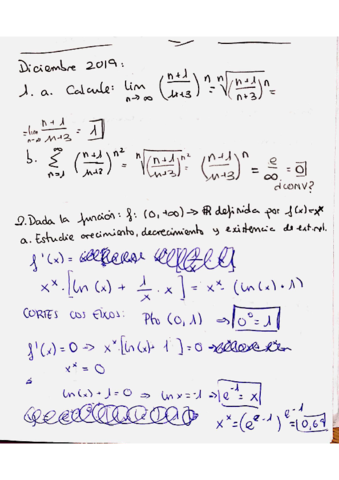 Diciembre 2019:
1. a. Calcule: lim n→∞ ((n+1)/(n+3))^n = ⁿ√((n+1)/(n+3))^n =
= lim n→∞ (n+1)/(n+3) = 1
b. ∑ n=1 ∞ ((n+1)/(n+3))^n² = ⁿ√((n+1)/(n+3))^n² = ((n+1)/(n+3))^n = e/∞ = 0
¿CONV?
2. Dada la función: f: (0,+∞) → ℝ definida por f(x)=x^x
a. Estudie crecimiento, decrecimiento y existencia de
f'(x) =
x^x · [ln(x) + 1/x · x] = x^x · (ln(x)+1)
CORTES COS EIXOS: Pto (0,1) ⇒ 0^0 = 1
f'(x)=0 ⇒ x^x · [ln(x)+1] = 0
x^x = 0
ln(x)+1 = 0 ⇒ ln x = -1 ⇒ e^-1 = x
x^x = (e^-1)^e^-1 = 0,69